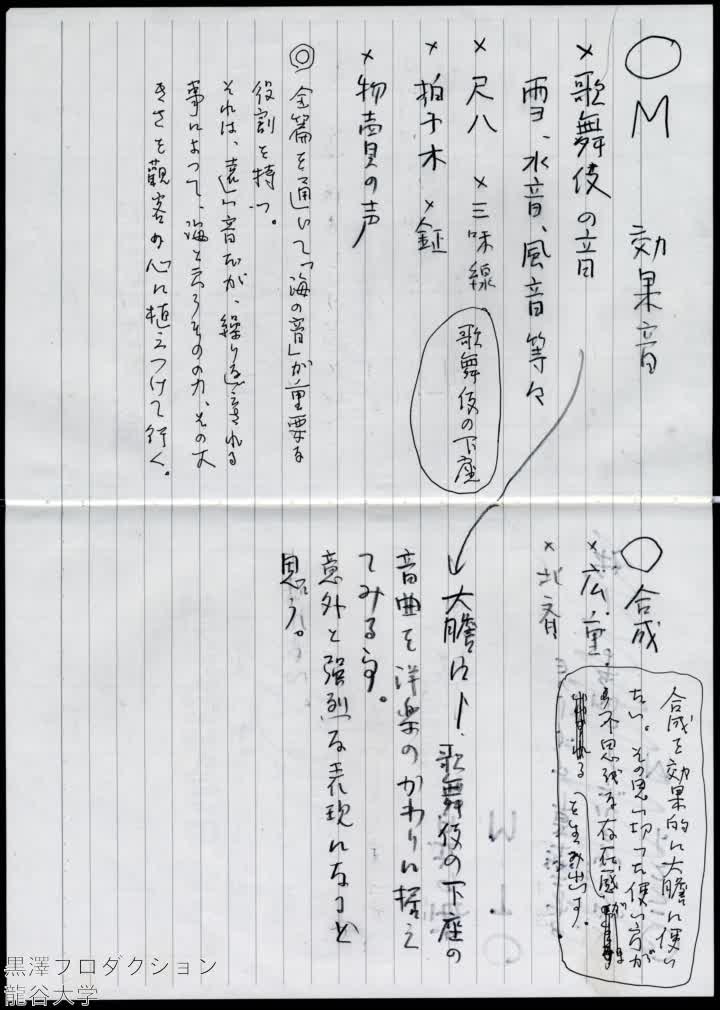 ○M 効果音
×歌舞伎の音
雪、水音、風音等々
×尺八 ×三味線
×拍子木 ×鉦
歌舞伎の下座
×物売の声
◎全篇を通いて「海の音」が重要な
役割を持つ。
それは、遠い音だが、繰り返される
事によって、海と云うものの力、その大
きさを観客の心に植えつけて行く。
○合成
×広重
×北斉
合成を効果的に大膽に使い
たい。その思い切った使い方が
不思議な存在感
を生み出す。
大膽に、歌舞伎の下座の
音曲を洋楽のかわりに据え
てみる事。
意外と強烈な表現になると
思う。
黒澤プロダクション
龍谷大学